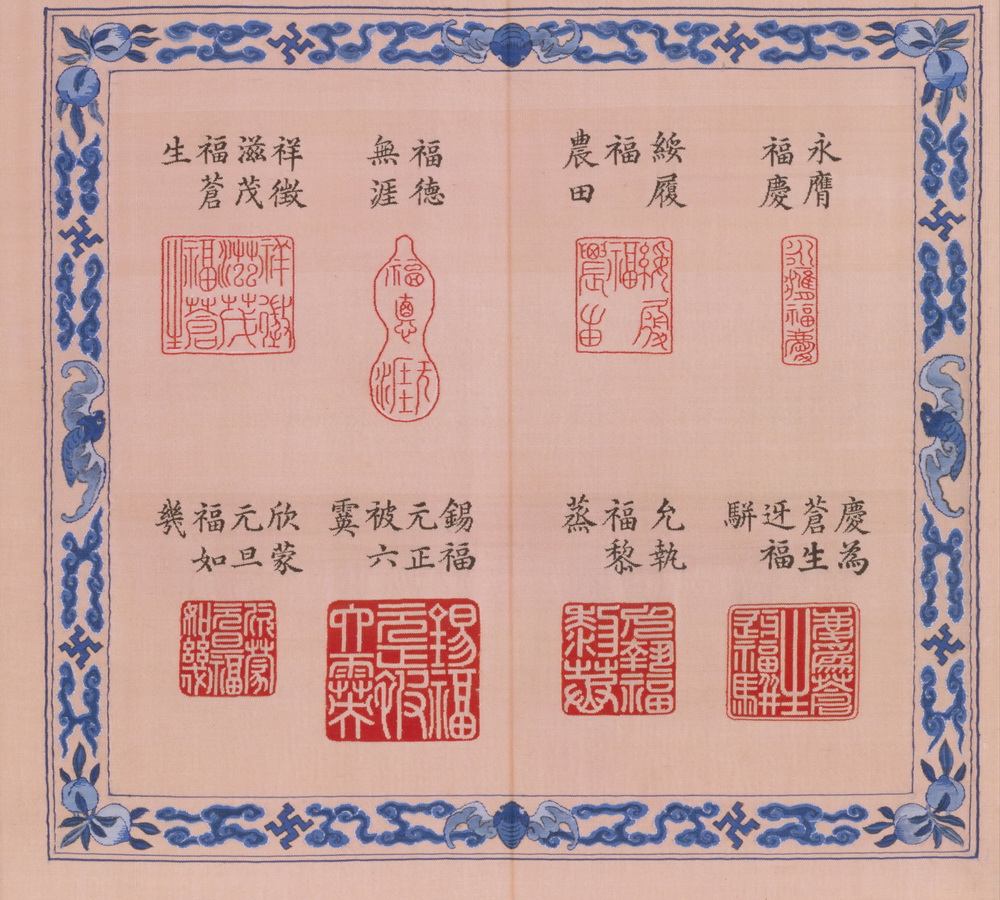 永膺
福慶
永膺福慶
綏履
福
農田
綏履
福
農田
福德
無涯
福
悳
无涯
祥徵
滋茂
福蒼
生
祥徵
滋茂
福蒼
生
慶為
蒼生
迓福
駢
慶為蒼
生
迓福駢
允執
福黎
蒸
允執福
黎蒸
錫福
元正
被六
霙
錫福
元正被
六霙
欣蒙
元旦
福如
幾
欣蒙
元旦福
如幾